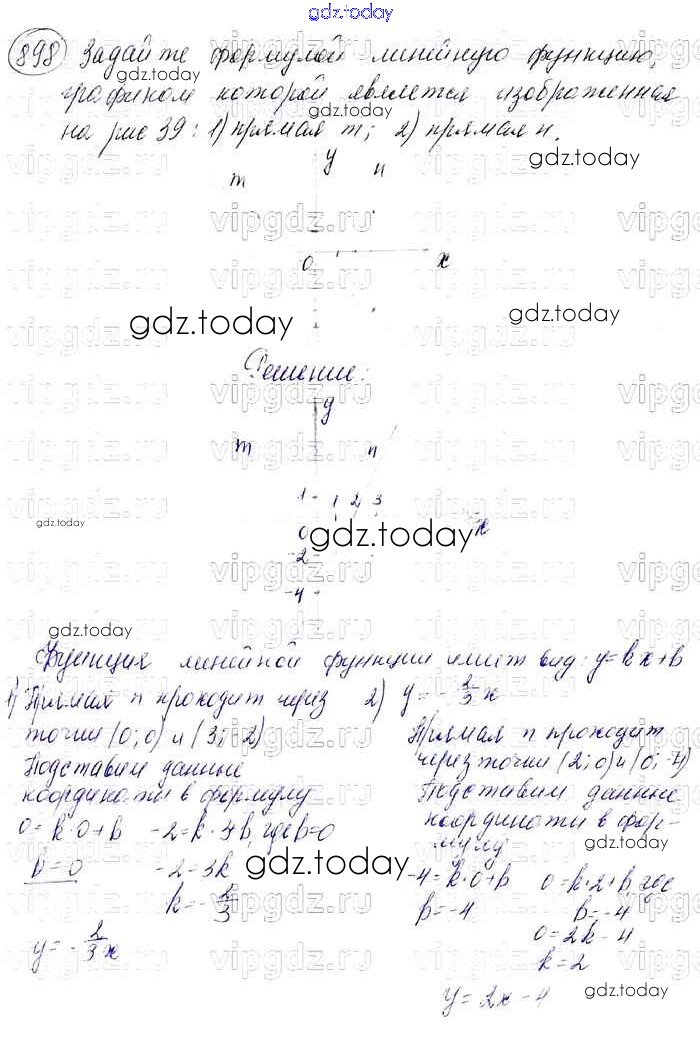 gdz.today
898 Задайте формулой линейную функцию,
gdz.today
графиком которой является изображенная
на рис 39: 1) прямая m; 2) прямая n.
gdz.today
y
m
n
0
x
gdz.today
gdz.today
Решение:
y
m
n
1
1 2 3
gdz.today
0
gdz.today
x
-2
-4
gdz.today
Функция линейной функции имеет вид: y=kx+b
1) Прямая n проходит через
точки (0; 0) и (3; -2)
Подставим данные
координаты в формулу
0=k·0+b -2=k·3+b, где b=0
b=0 -2=3k
k=-2/3
y=-2/3x
2) y=-2/3x
Прямая n проходит
через точки (2; 0) и (0; -4)
Подставим данные
координаты в фор-
мулу
-4=k·0+b 0=k·2+b, где
b=-4 b=-4
0=2k-4
k=2
y=2x-4
gdz.today
gdz.today
gdz.today
gdz.today
gdz.today
vipgdz.ru